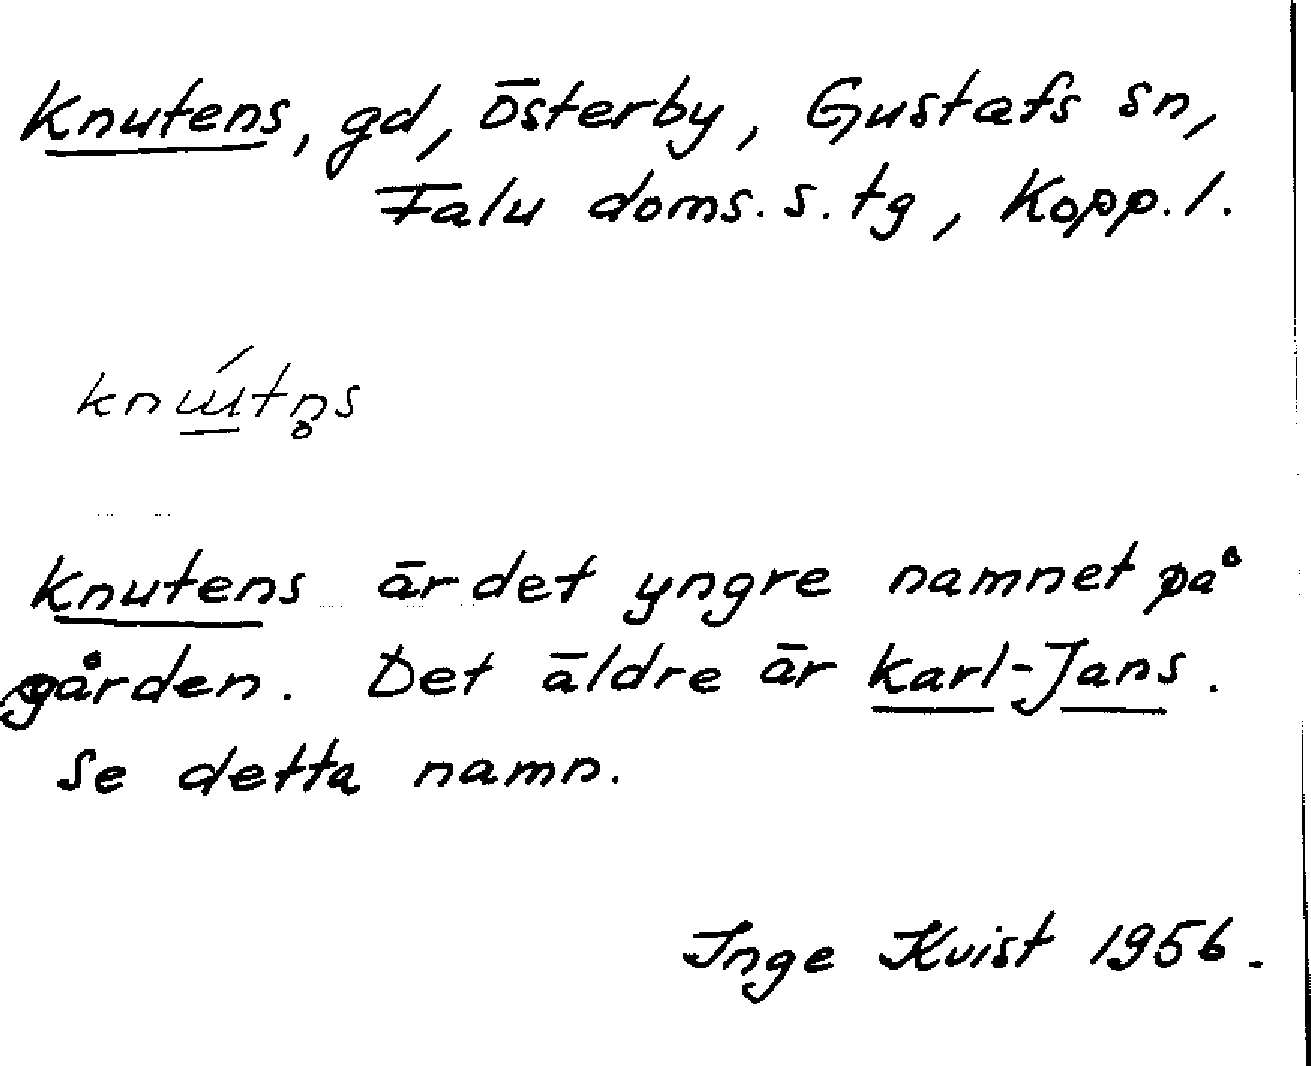 Knutens, gd, Österby, Gustafs sn,
Falu doms. s. tg, Kopp. l.
knɯ́tn̥s
Knutens är det yngre namnet på
gården. Det äldre är Karl-Jans.
Se detta namn.
Inge Kvist 1956.